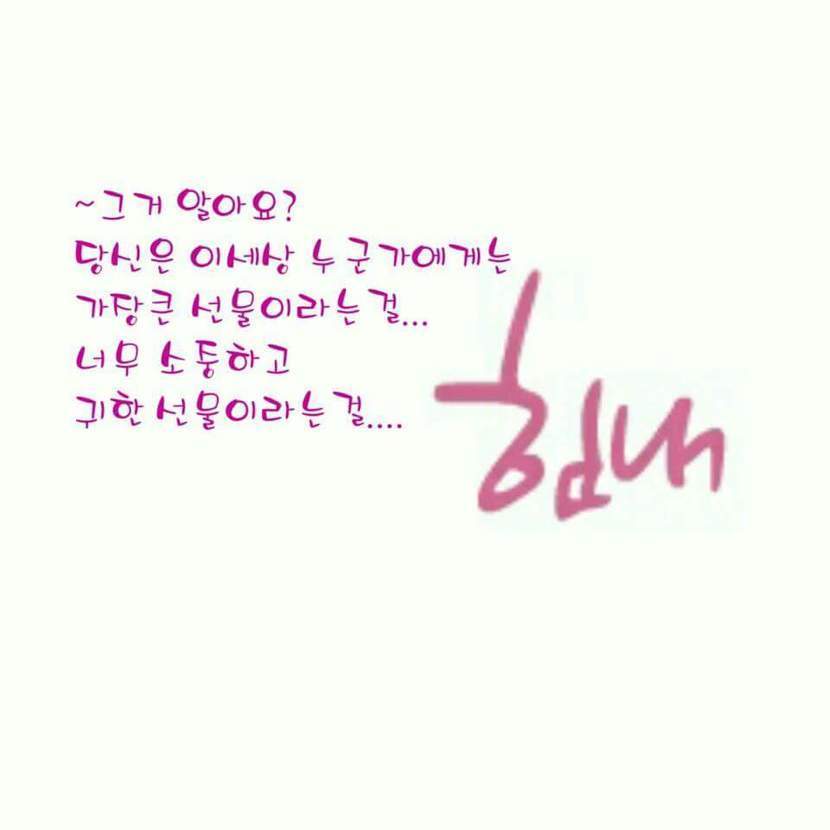 ~그거 알아요?
당신은 이세상 누군가에게는
가장큰 선물이라는걸...
너무 소중하고
귀한 선물이라는걸....
힘내